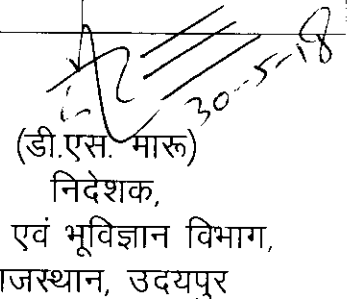 30-5-18
(डी.एस. मारू)
निदेशक,
एवं भूविज्ञान विभाग,
राजस्थान, उदयपुर